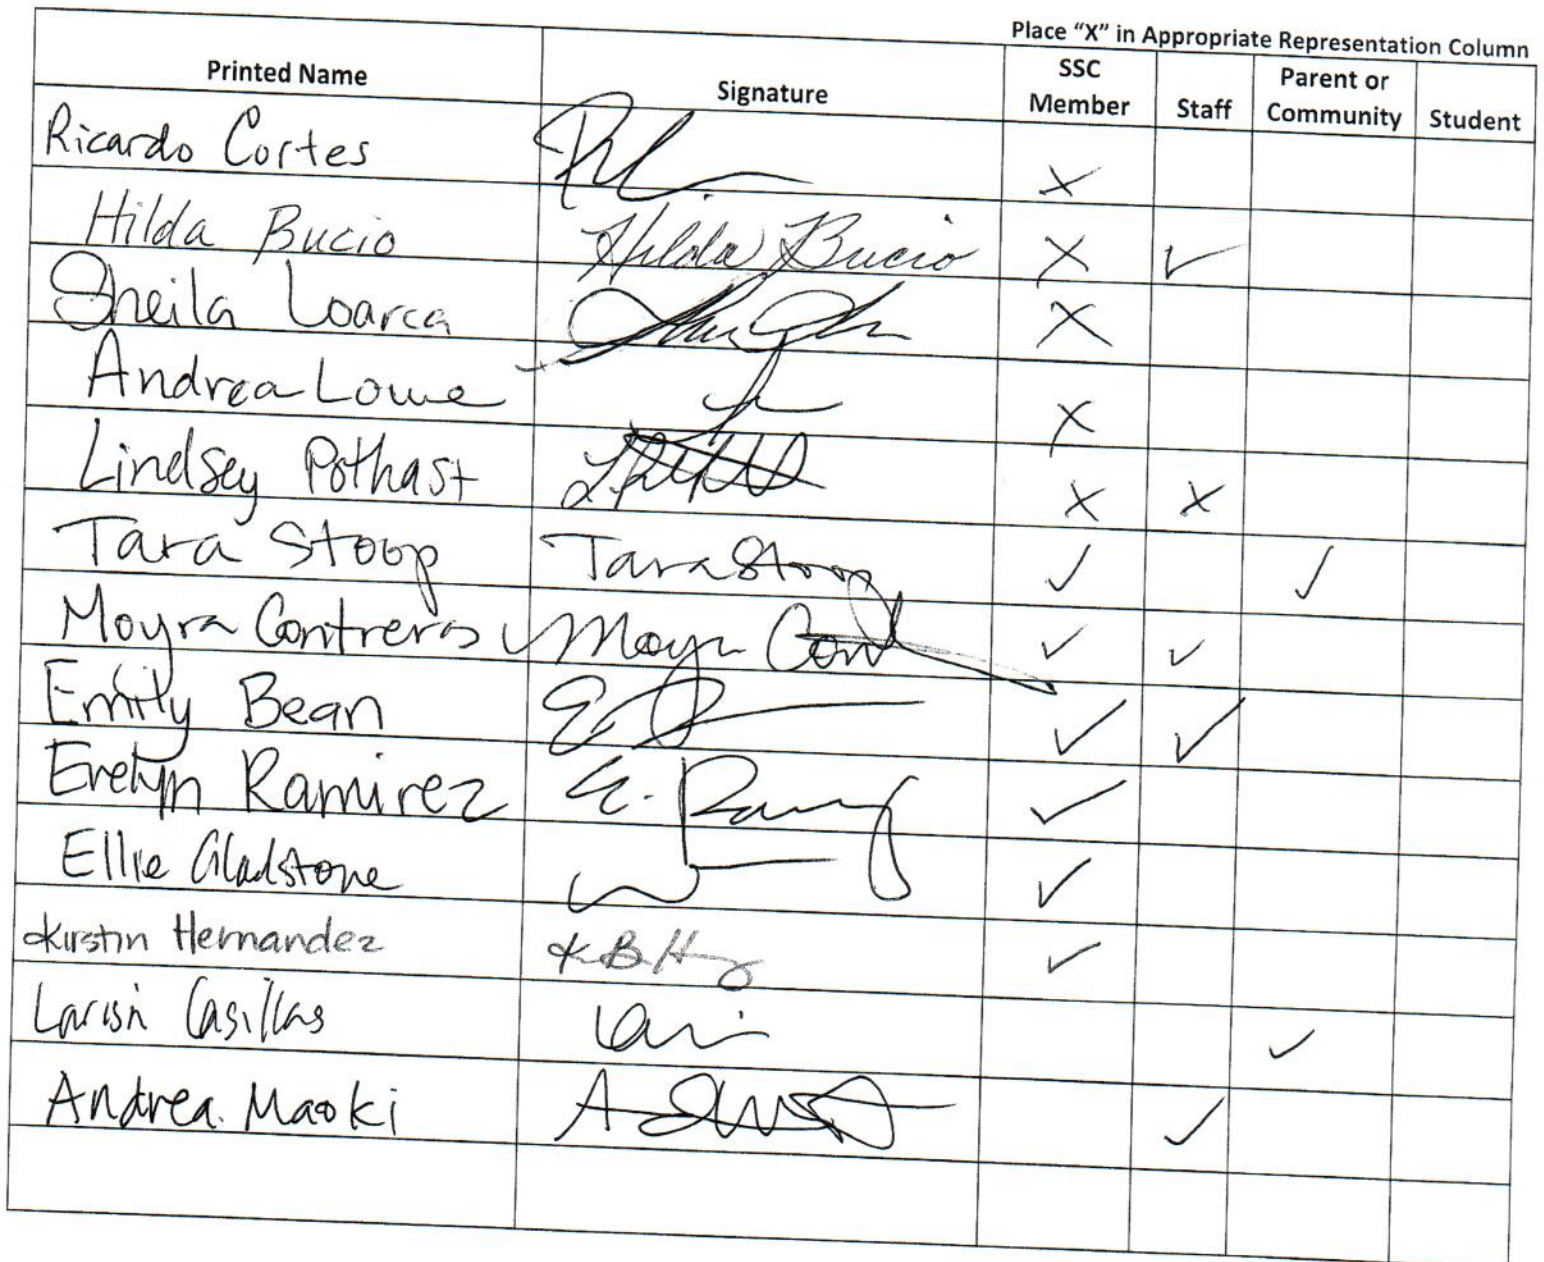 Place “X” in Appropriate Representation Column
Printed Name Signature SSC Member Staff Parent or Community Student
Ricardo Cortes X
Hilda Bucio Hilda Bucio X ✓
Sheila Loarca X
Andrea Lowe X
Lindsey Pothast X X
Tara Stoop Tara Stoop ✓ ✓
Moyra Contreras Moyra Cont ✓ ✓
Emily Bean ✓ ✓
Evelyn Ramirez ✓
Ellie Gladstone ✓
Kirstin Hernandez ✓
Larisa Casillas ✓
Andrea Maoki ✓